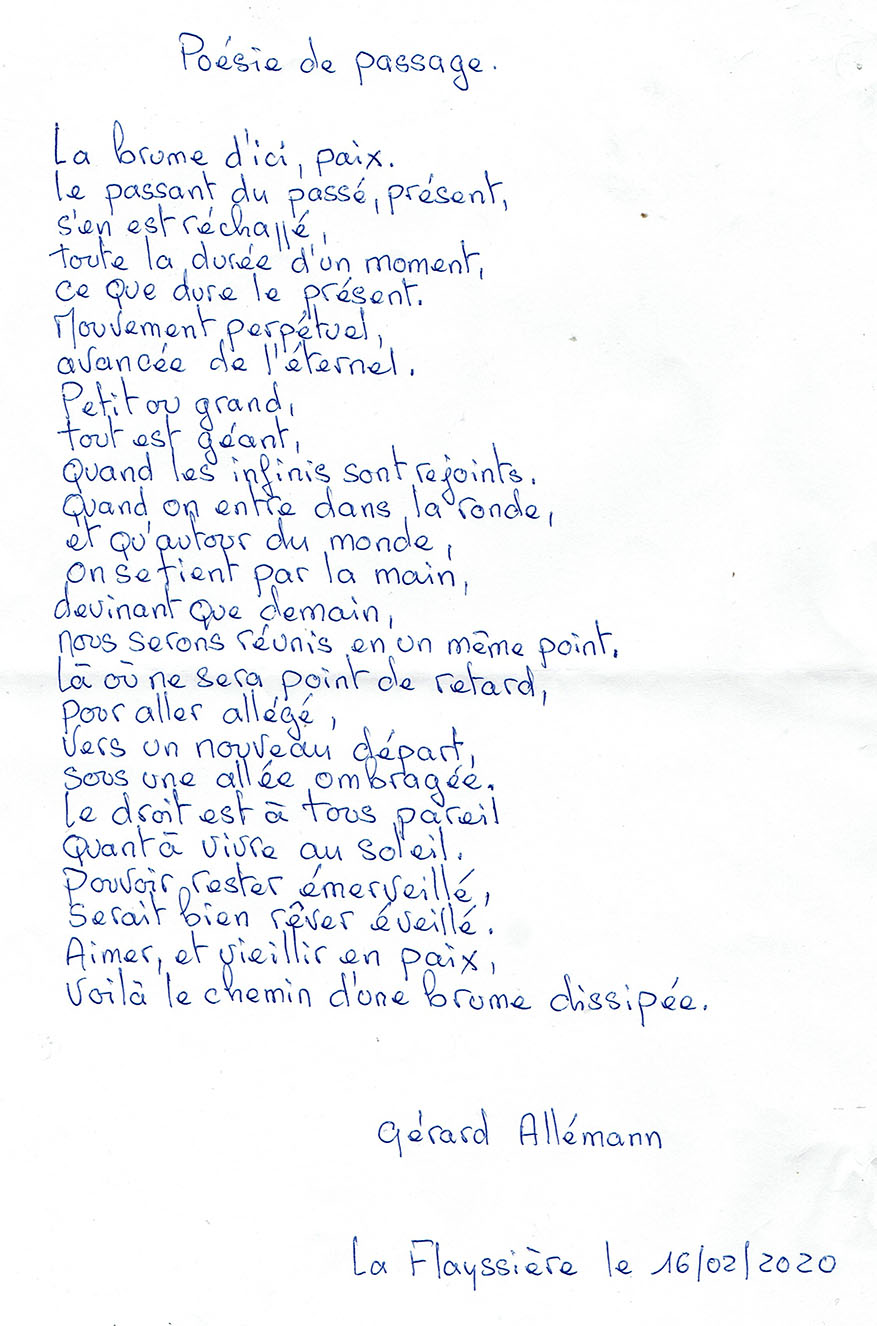 Poésie de passage.
La brume d'ici, paix.
Le passant du passé, présent,
s'en est réchappé,
toute la durée d'un moment,
ce que dure le présent.
Mouvement perpétuel,
avancée de l'éternel.
Petit ou grand,
tout est géant,
Quand les infinis sont rejoints.
Quand on entre dans la ronde,
et qu'autour du monde,
on se tient par la main,
devinant que demain,
nous serons réunis en un même point.
Là où ne sera point de retard,
pour aller allégé,
vers un nouveau départ,
sous une allée ombragée.
Le droit est à tous pareil
Quant à vivre au soleil.
Pouvoir rester émerveillé,
Serait bien rêver éveillé.
Aimer, et vieillir en paix,
Voilà le chemin d'une brume dissipée.
Gérard Allémann
La Flayssière le 16/02/2020